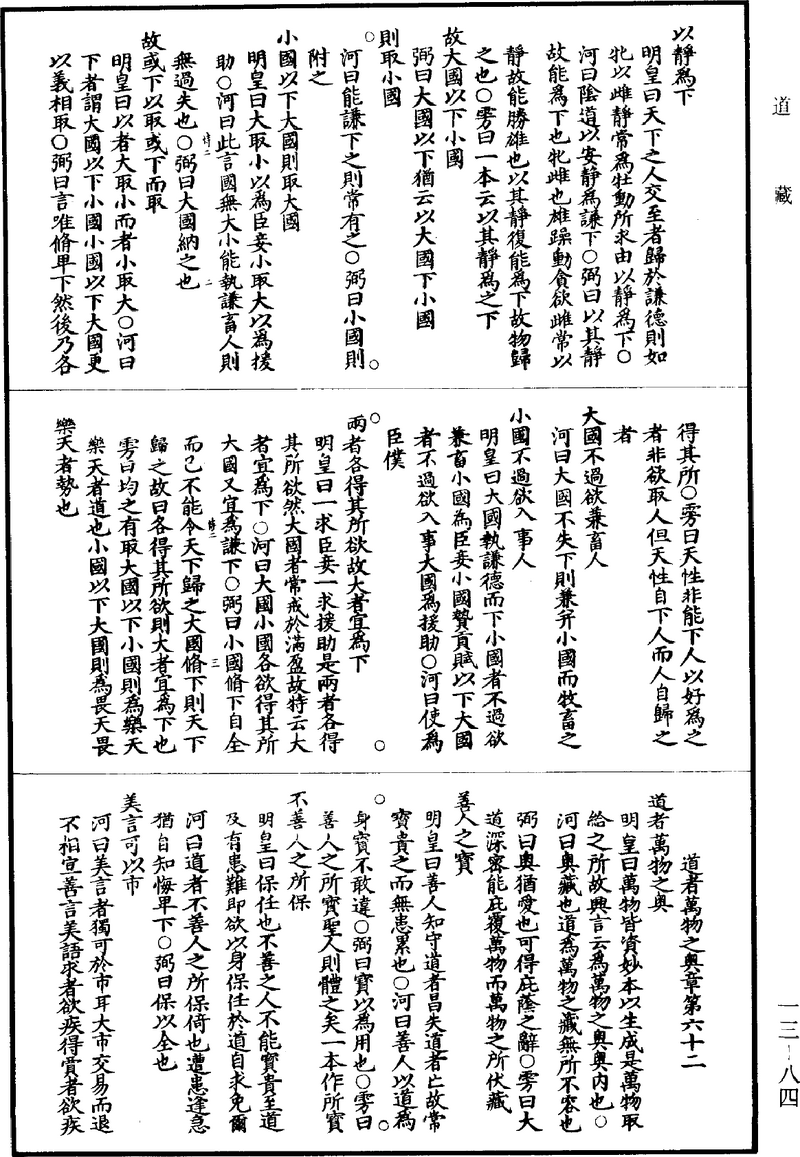 道藏
以靜爲下
明皇曰天下之人交至者歸於謙德則如
牝以雌靜常爲牡動所求由以靜爲下○
河曰陰道以安靜爲謙下○弼曰以其靜
故能爲下也牝雌也雄躁動貪欲雌常以
靜故能勝雄也以其靜復能爲下故物歸
之也○雱曰一本云以其靜爲之下
故大國以下小國
弼曰大國以下猶云以大國下小國
則取小國
○河曰能謙下之則常有之○弼曰小國則○
附之
小國以下大國則取大國
明皇曰大取小以爲臣妾小取大以爲援
助○河曰此言國無大小能執謙畜人則
無過失也○弼曰大國納之也
故或下以取或下而取
明皇曰以者大取小而者小取大○河曰
下者謂大國以下小國小國以下大國更
以義相取○弼曰言唯脩卑下然後乃各
得其所○雱曰天性非能下人以好爲之
者非欲取人但天性自下人而人自歸之
者
大國不過欲兼畜人
河曰大國不失下則兼并小國而牧畜之
小國不過欲入事人
明皇曰大國執謙德而下小國者不過欲
兼畜小國爲臣妾小國贄貢賦以下大國
者不過欲入事大國爲援助○河曰使爲
臣僕
○○
兩者各得其所欲故大者宜爲下
明皇曰一求臣妾一求援助是兩者各得
其所欲然大國者常戒於滿盈故特云大
者宜爲下○河曰大國小國各欲得其所
大國又宜爲謙下○弼曰小國脩下自全
而已不能令天下歸之大國脩下則天下
歸之故曰各得其所欲則大者宜爲下也
雱曰均之有取大國以下小國則爲樂天
樂天者道也小國以下大國則爲畏天畏
樂天者勢也
道者萬物之奧章第六十二
道者萬物之奧
明皇曰萬物皆資妙本以生成是萬物取
給之所故興言云爲萬物之奧奧内也○
河曰奧藏也道爲萬物之藏無所不容也
弼曰奧猶愛也可得庇蔭之辭○雱曰大
道深密能庇覆萬物而萬物之所伏藏
善人之寶
明皇曰善人知守道者昌失道者亡故常
寶貴之而無患累也○河曰善人以道爲
○身寶不敢違○弼曰寶以爲用也○雱曰○
善人之所寶聖人則體之矣一本作所寶
不善人之所保
明皇曰保任也不善之人不能寶貴至道
及有患難即欲以身保任於道自求免爾
河曰道者不善人之所保倚也遭患逢急
猶自知悔卑下○弼曰保以全也
美言可以市
河曰美言者獨可於市耳夫市交易而退
不相宜善言美語求者欲疾得賣者欲疾
一三－八四